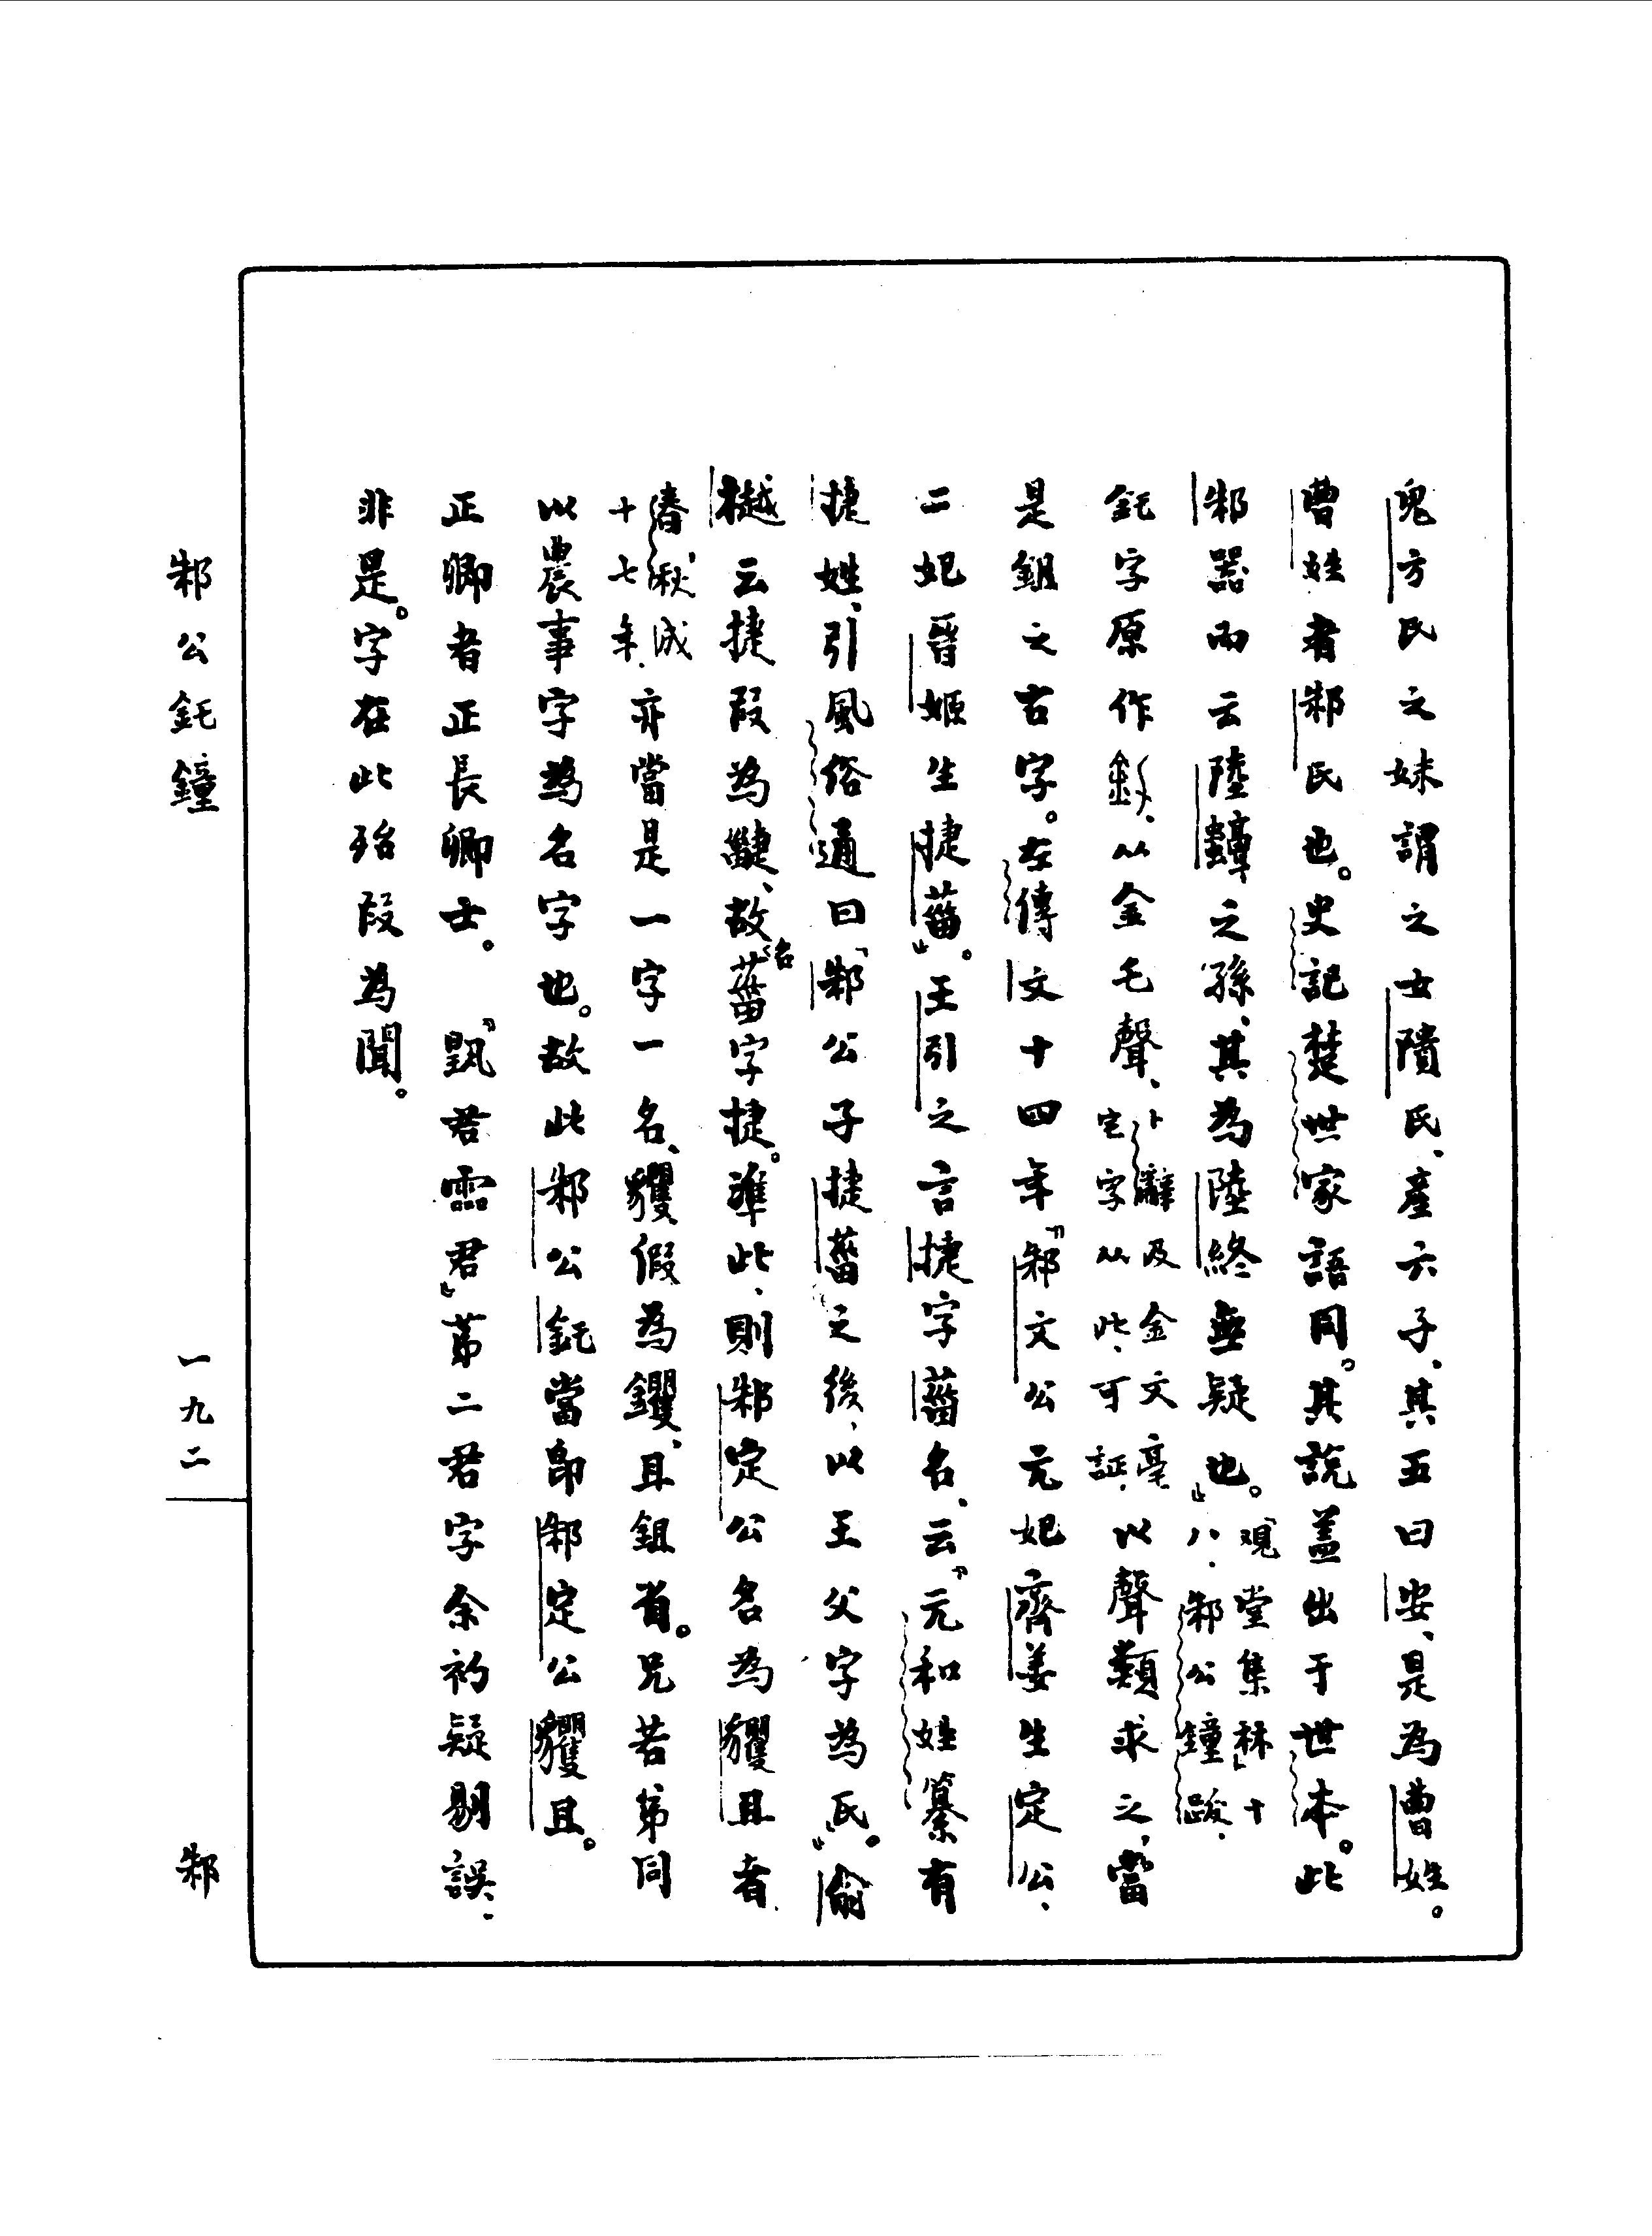 鬼方氏之妹謂之女隤氏、產六子、其五曰安、是為曹姓。
曹姓者邾氏也。史記楚世家語同。其説盖出于世本。此
邾器而云陸𧊒之孫、其為陸終無疑也。』『觀堂集林』十八、邾公鐘跋.
𨥫字原作、从金乇聲、卜辭及金文亳宅字从此、可証. 以聲類求之，當
是鉏之古字。左傳文十四年『邾文公元妃齊姜生定公、
二妃晉姬生捷菑』。王引之言捷字菑名、云『元和姓纂有
捷姓、引風俗通曰『邾公子捷菑之後、以王父字為氏。』俞
樾云捷叚為疌、故名菑字捷。準此、則邾定公名為貜且者、
春秋，成十七年. 亦當是一字一名、貜假為钁、且鉏省。兄若弟同
以農事字為名字也。故此邾公𨥫當即邾定公貜且。
正卿者正長卿士。『甄君霝君』苐二君字余初疑剔誤、
非是。字在此殆叚為聞。
邾公𨥫鐘
一九二
邾